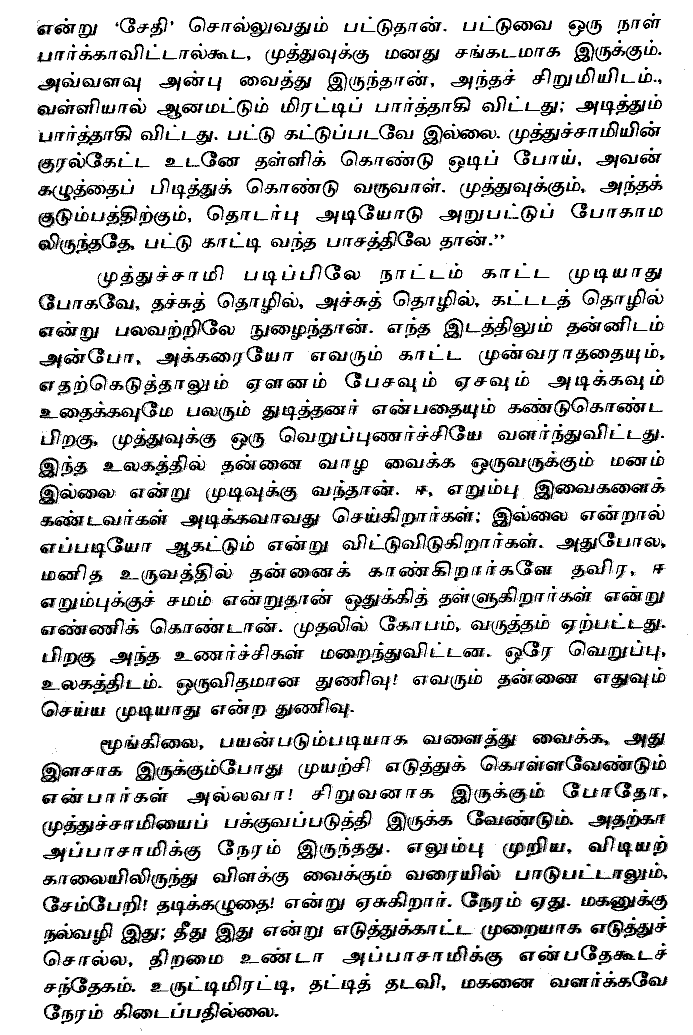 என்று ‘சேதி’ சொல்லுவதும் பட்டுதான். பட்டுவை ஒரு நாள்
பார்க்காவிட்டால்கூட, முத்துவுக்கு மனது சங்கடமாக இருக்கும்.
அவ்வளவு அன்பு வைத்து இருந்தான், அந்தச் சிறுமியிடம்.,
வள்ளியால் ஆனமட்டும் மிரட்டிப் பார்த்தாகி விட்டது; அடித்தும்
பார்த்தாகி விட்டது. பட்டு கட்டுப்படவே இல்லை. முத்துச்சாமியின்
குரல்கேட்ட உடனே தள்ளிக் கொண்டு ஒடிப் போய், அவன்
கழுத்தைப் பிடித்துக் கொண்டு வருவாள். முத்துவுக்கும், அந்தக்
குடும்பத்திற்கும், தொடர்பு அடியோடு அறுபட்டுப் போகாம
லிருந்ததே, பட்டு காட்டி வந்த பாசத்திலே தான்.”
முத்துச்சாமி படிப்பிலே நாட்டம் காட்ட முடியாது
போகவே, தச்சுத் தொழில், அச்சுத் தொழில், கட்டடத் தொழில்
என்று பலவற்றிலே நுழைந்தான். எந்த இடத்திலும் தன்னிடம்
அன்போ, அக்கரையோ எவரும் காட்ட முன்வராததையும்,
எதற்கெடுத்தாலும் ஏளனம் பேசவும் ஏசவும் அடிக்கவும்
உதைக்கவுமே பலரும் துடித்தனர் என்பதையும் கண்டுகொண்ட
பிறகு, முத்துவுக்கு ஒரு வெறுப்புணர்ச்சியே வளர்ந்துவிட்டது.
இந்த உலகத்தில் தன்னை வாழ வைக்க ஒருவருக்கும் மனம்
இல்லை என்று முடிவுக்கு வந்தான். ஈ, எறும்பு இவைகளைக்
கண்டவர்கள் அடிக்கவாவது செய்கிறார்கள்; இல்லை என்றால்
எப்படியோ ஆகட்டும் என்று விட்டுவிடுகிறார்கள். அதுபோல,
மனித உருவத்தில் தன்னைக் காண்கிறார்களே தவிர, ஈ
எறும்புக்குச் சமம் என்றுதான் ஒதுக்கித் தள்ளுகிறார்கள் என்று
எண்ணிக் கொண்டான். முதலில் கோபம், வருத்தம் ஏற்பட்டது.
பிறகு அந்த உணர்ச்சிகள் மறைந்துவிட்டன. ஒரே வெறுப்பு,
உலகத்திடம். ஒருவிதமான துணிவு! எவரும் தன்னை எதுவும்
செய்ய முடியாது என்ற துணிவு.
மூங்கிலை, பயன்படும்படியாக வளைத்து வைக்க, அது
இளசாக இருக்கும்போது முயற்சி எடுத்துக் கொள்ளவேண்டும்
என்பார்கள் அல்லவா! சிறுவனாக இருக்கும் போதோ,
முத்துச்சாமியைப் பக்குவப்படுத்தி இருக்க வேண்டும். அதற்கா
அப்பாசாமிக்கு நேரம் இருந்தது. எலும்பு முறிய, விடியற்
காலையிலிருந்து விளக்கு வைக்கும் வரையில் பாடுபட்டாலும்,
சேம்பேறி! தடிக்கழுதை! என்று ஏசுகிறார். நேரம் ஏது. மகனுக்கு
நல்வழி இது; தீது இது என்று எடுத்துக்காட்ட முறையாக எடுத்துச்
சொல்ல, திறமை உண்டா அப்பாசாமிக்கு என்பதேகூடச்
சந்தேகம். உருட்டிமிரட்டி, தட்டித் தடவி, மகனை வளர்க்கவே
நேரம் கிடைப்பதில்லை.